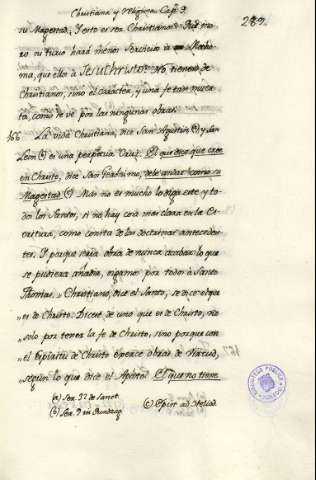 Christiana y Religiosa Cap. 9.
289.
su Magestad, y esto es ser Christiano.
no su tivio hará menos servicio à
ma, que ellos à Jesu Christo. No tienen de
Christianos, sino el caracter, y una fe tan muer-
ta, como se vé por las ningunas obras.
166 La vida Christiana, dice San Agustin (a) y San
Leon (b) es una perpetua Cruz. El que dice que cree
en Christo, dice San Geronimo, debe andar como su
Magestad. (c) Mas no es mucho lo diga este, y to-
dos los Santos, si no hay cosa mas clara en la Es-
critura, como consta de las doctrinas anteceden-
tes. Y porque seria obra de nunca acabar lo que
se pudiera añadir, oigamos por todos à Santo
Thomas. „ Christiano, dice el Santo, se dice el que
„ es de Christo. Dicese de uno que es de Christo, no
„ solo por tener la fe de Christo, sino porque con
„ el Espiritu de Christo exerce obras de virtud,
„ segun lo que dice el Apostol. El que no tiene
(a) Ser. 32 de Sanct.
(b) Ser. 9 in Quadrag.
(c) Epist. ad Heliod.
BIBLIOTECA PUBLICA